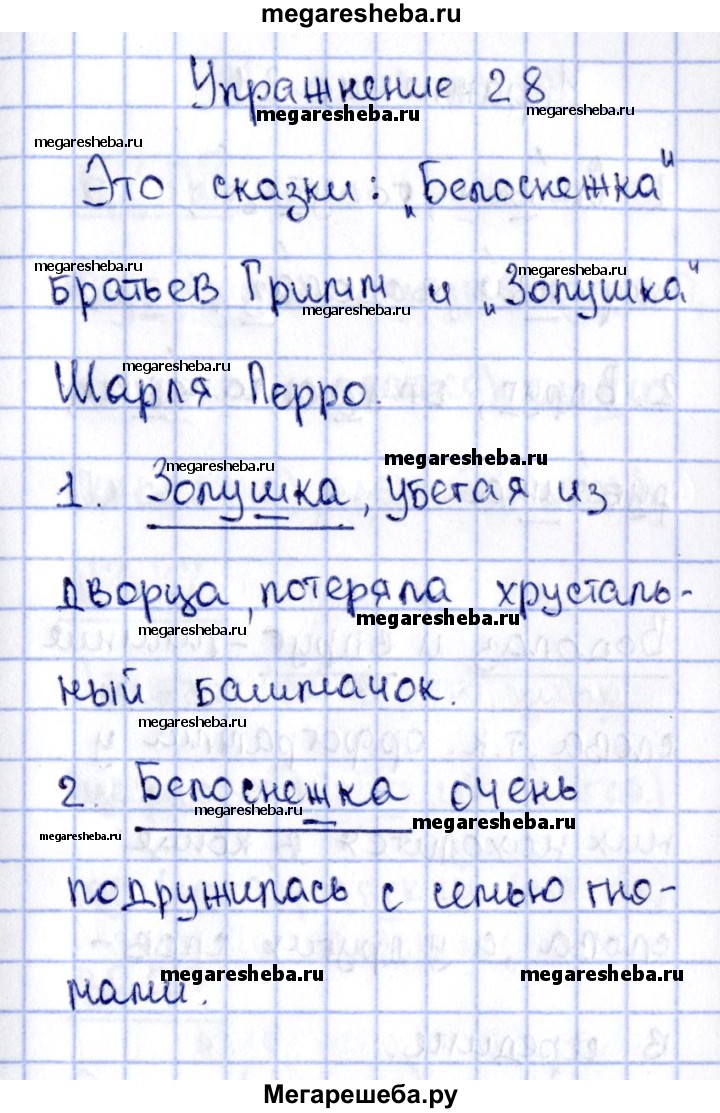 megaresheba.ru
Упражнение 28
megaresheba.ru
megaresheba.ru
Это сказки: „Белоснежка"
megaresheba.ru
megaresheba.ru
Братьев Гримм и „Золушка"
megaresheba.ru
megaresheba.ru
Шарля Перро.
megaresheba.ru
megaresheba.ru
1. Золушка, убегая из
дворца, потеряла хрусталь-
megaresheba.ru
megaresheba.ru
ный башмачок.
megaresheba.ru
2. Белоснежка очень
megaresheba.ru
megaresheba.ru
megaresheba.ru
подружилась с семью гно-
megaresheba.ru
megaresheba.ru
мами.
Мегарешеба.ру